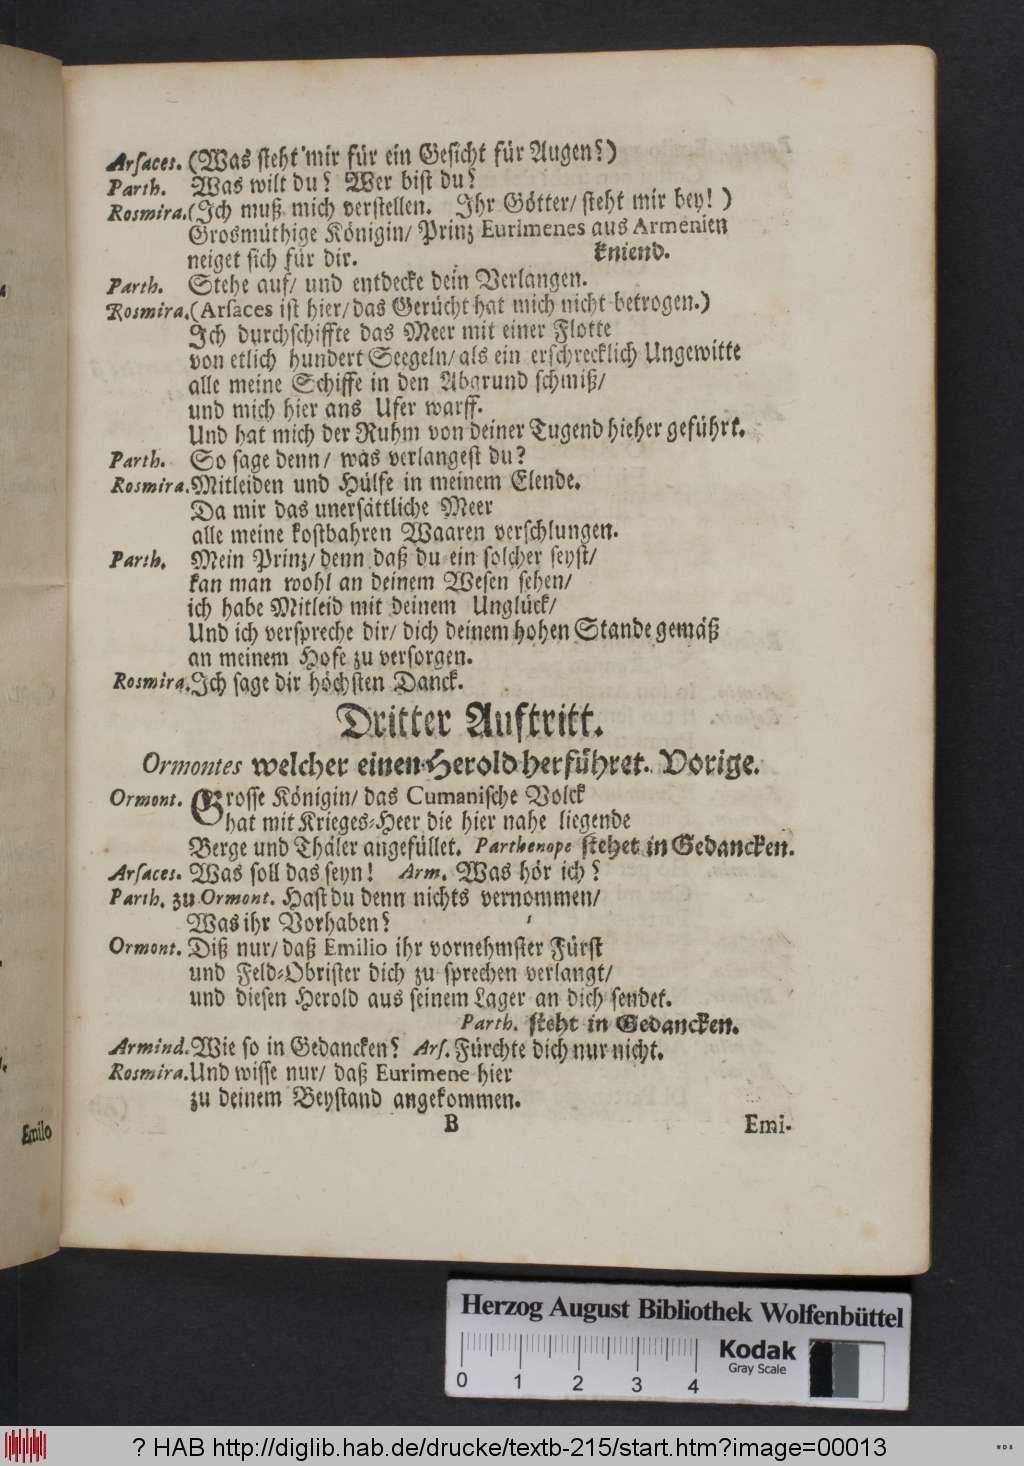 Arsaces. (Was steht mir für ein Gesicht für Augen?)
Parth. Was wilt du? Wer bist du?
Rosmira. (Ich muß mich verstellen. Ihr Götter/ steht mir bey!)
Grosmüthige Königin/ Prinz Eurimenes aus Armenien
neiget sich für dir. kniend.
Parth. Stehe auf/ und entdecke dein Verlangen.
Rosmira. (Arsaces ist hier/ das Gerücht hat mich nicht betrogen.)
Ich durchschiffte das Meer mit einer Flotte
von etlich hundert Seegeln/ als ein erschrecklich Ungewitte
alle meine Schiffe in den Abgrund schmiß/
und mich hier ans Ufer warff.
Und hat mich der Ruhm von deiner Tugend hieher geführt.
Parth. So sage denn/ was verlangest du?
Rosmira. Mitleiden und Hülfe in meinem Elende.
Da mir das unersättliche Meer
alle meine kostbahren Waaren verschlungen.
Parth. Mein Prinz/ denn daß du ein solcher seyst/
kan man wohl an deinem Wesen sehen/
ich habe Mitleid mit deinem Unglück/
Und ich verspreche dir/ dich deinem hohen Stande gemäß
an meinem Hofe zu versorgen.
Rosmira. Ich sage dir höchsten Danck.
Dritter Auftritt.
Ormontes welcher einen Herold herführet. Vorige.
Ormont. Grosse Königin/ das Cumanische Volck
hat mit Krieges-Heer die hier nahe liegende
Berge und Thäler angefüllet. Parthenope stehet in Gedancken.
Arsaces. Was soll das seyn! Arm. Was hör ich?
Parth. zu Ormont. Hast du denn nichts vernommen/
Was ihr Vorhaben?
Ormont. Diß nur/ daß Emilio ihr vornehmster Fürst
und Feld-Obrister dich zu sprechen verlangt/
und diesen Herold aus seinem Lager an dich sendet.
Parth. steht in Gedancken.
Armind. Wie so in Gedancken? Ars. Fürchte dich nur nicht.
Rosmira. Und wisse nur/ daß Eurimene hier
zu deinem Beystand angekommen.
B Emi-
Emilo
Herzog August Bibliothek Wolfenbüttel
0 1 2 3 4
Kodak
Gray Scale
? HAB http://diglib.hab.de/drucke/textb-215/start.htm?image=00013